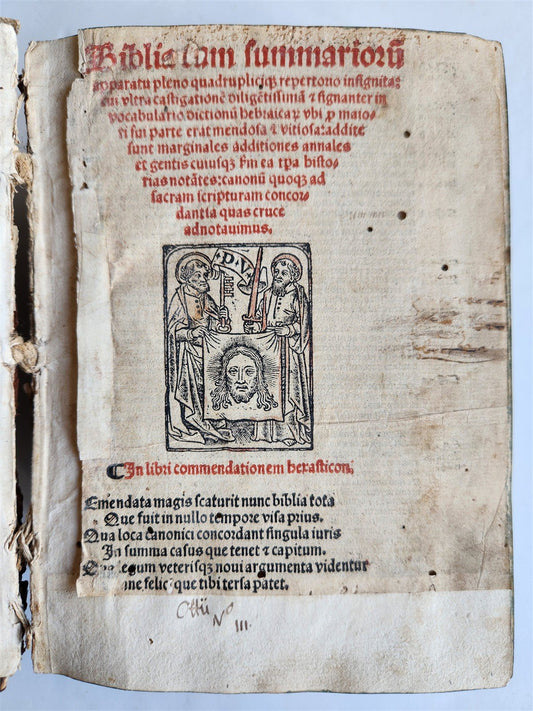 Biblia cum summariorū
apparatu pleno quadrupliciqꝫ repertorio insignita:
cui vltra castigationē diligētissimā ⁊ signanter in
vocabulario dictionū hebraicaꝝ vbi ꝓ maio⸗
ri sui parte erat mendosa ⁊ vitiosa: addite
sunt marginales additiones annales
et gentis cuiusqꝫ
rias notātes: canonū quoqꝫ ad
sacram scripturam concor⸗
dantia quas cruce
adnotauimus.
D. V.
¶ In libri commendationem hexasticon,
Emendata magis scaturit nunc biblia tota
Que fuit in nullo tempore visa prius.
Qua loca canonici concordant singula iuris
In summa casus que tenet ⁊ capitum.
veterisqꝫ noui argumenta videntur
que tibi tersa patet.
No
III.